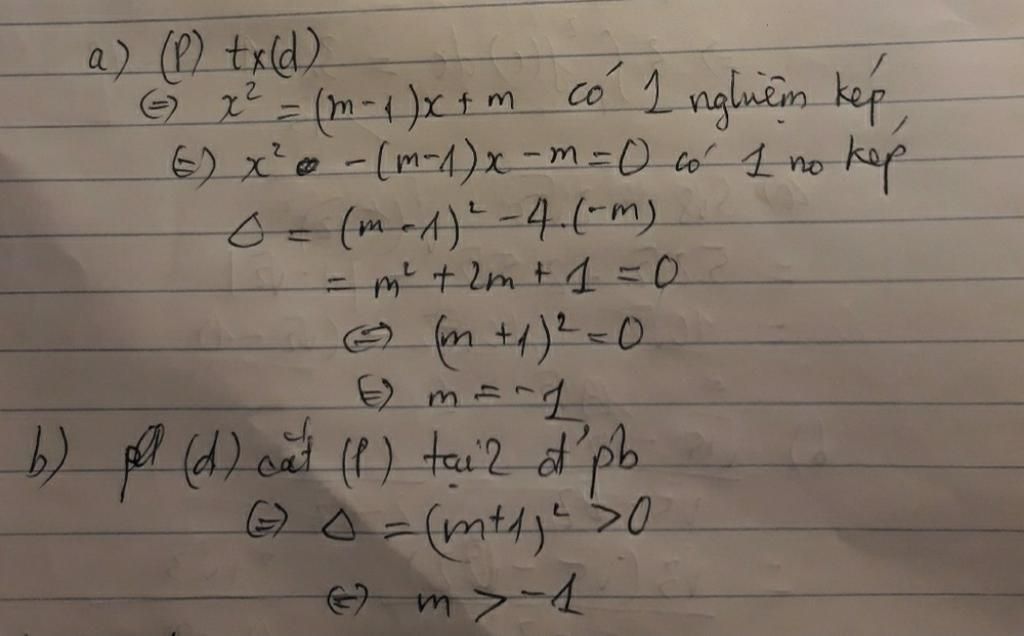 a) (P) tx(d)
⇔ x² = (m-1)x + m có 1 nghiệm kép
⇔ x² - (m-1)x - m = 0 có 1 no kép
Δ = (m-1)² - 4.(-m)
= m² + 2m + 1 = 0
⇔ (m+1)² = 0
⇔ m = -1
b) (d) cắt (P) tại 2 đ' pb
⇔ Δ = (m+1)² > 0
⇔ m > -1